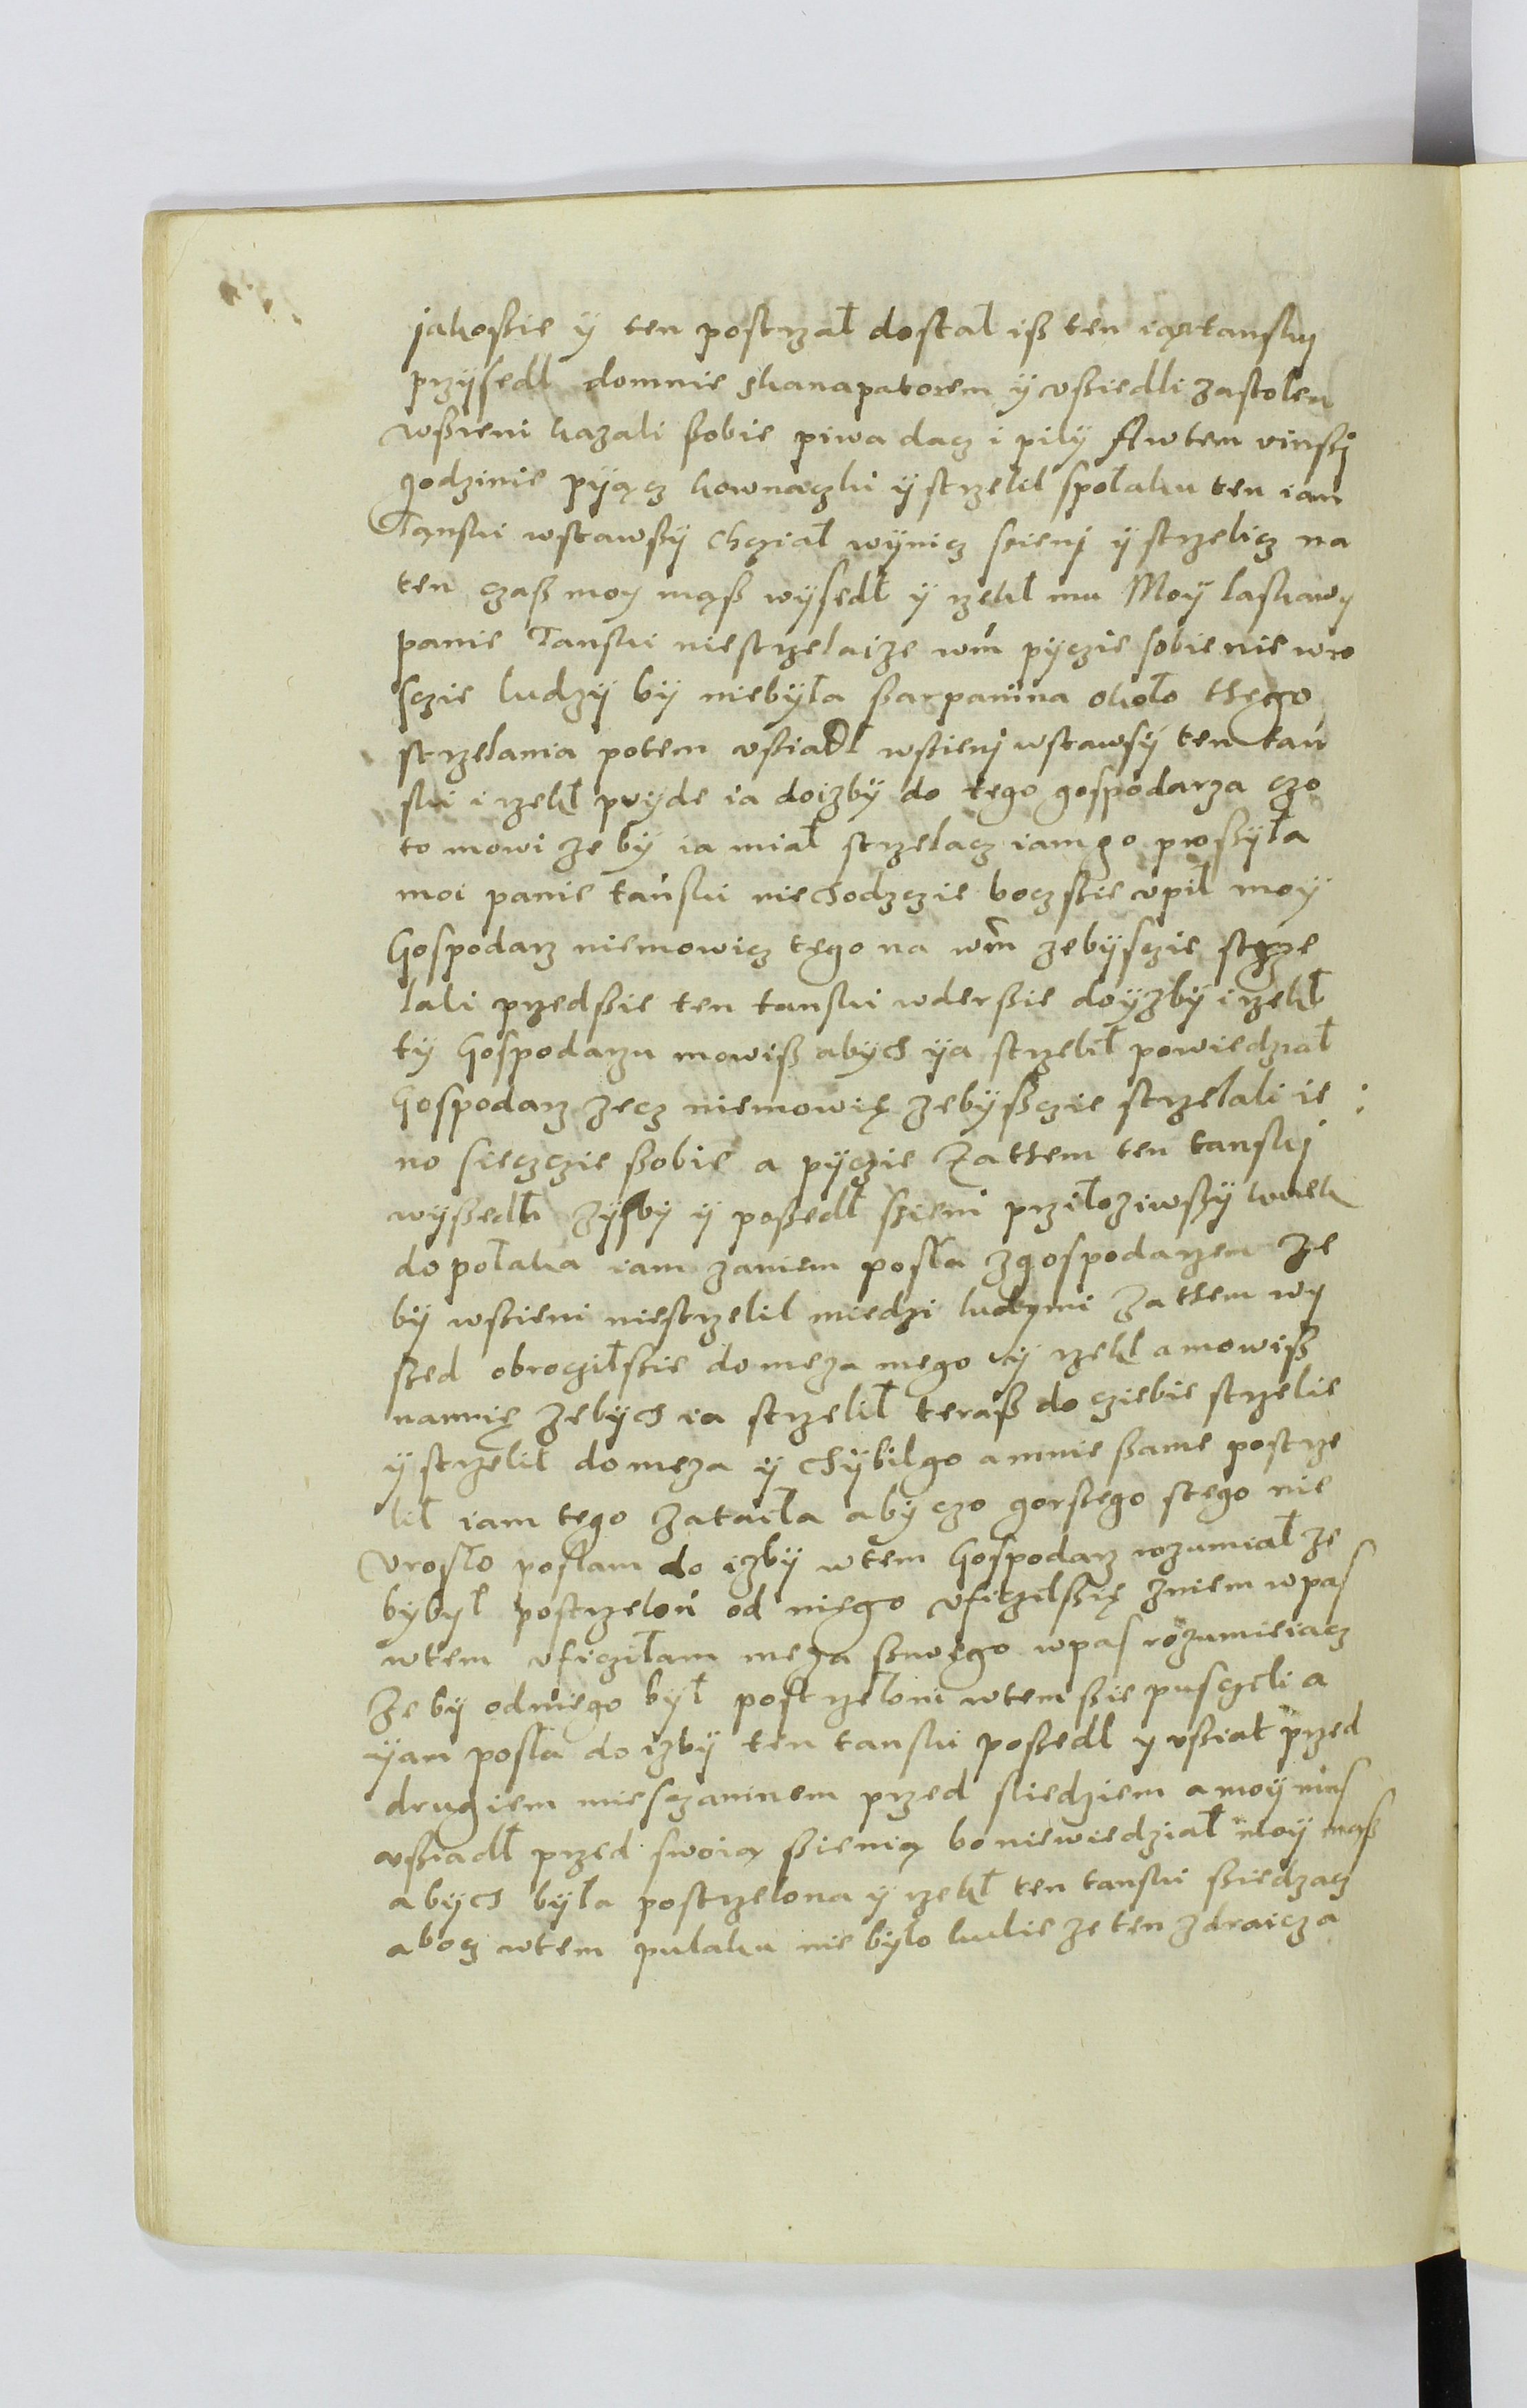 jakossie ÿ ten postrzał dostal iß ten ian tanski
przÿsedl domnie skanapatorem ÿ vssiedli zastolem
wssieni kazali ssobie piwa dacz i pilÿ Awtem
godzinie pÿącz ÿ strzelil spolaku ten ian
Tanski wstawssÿ chcział wÿnicz scieni ÿ strzelicz na
ten czaß moy mąß wÿsedł ÿ rzekł mu Moÿ laskawy
panie Tanski niestrzelaize wm̃ pÿczie sobie nie wro
sczie ludzÿ bÿ niebÿła ssarpanina około thego
strzelania potem vssiadł wssieni wstawsÿ ten tan
ski i rzekł pvÿde ia doizbÿ do tego gospodarza czo
to mowi ze bÿ ia miał strzelacz iamgo prossÿła
moi panie tanski niechodzczie boczssie vpił moÿ
Gospodarz niemowicz tego na wm̃ zebÿsczie strze
lali przedssie ten tanski wderssie doÿzbÿ i rzekł
tÿ Gospodarzu mowiß abych ÿa strzelił powiedział
Gospodarz zecz niemowię zebÿssczie strzelali ie
no sieczczie ssobie a pÿczie Zathem ten tanski
wÿssedł Zÿsbÿ ÿ possedł ssieni prziłoziwssÿ kurek
do połaka iam zaniem posła zgospodarzem ze
bÿ wssieni niestrzelil miedzi ludzmi Zathem wÿ
ssed obrocziłssie do meza mego ÿ rzekł a mowiß
namnię zebÿch ia strzelił teraß do cziebie strzelie
ÿ strzelił do meza ÿ chÿbilgo a mnie ssame postrze
lił iam tego zataiła abÿ czo gorssego stego nie
vrosło posłam do izbÿ wtem Gospodarz rozumiał ze
bÿbÿł postrzelon od niego vficzilssię zniem wpas
wtem vficziłam męza sswego wpas rozumieiacz
ze bÿ odniego bÿł postrzeloni wtem ssie pusczeli a
ÿam posła do izbÿ ten tanski possedl y vssiał przed
drugiem miesczaninem przed sliedziem a moÿ
vssiadł przed swoią ssienią bo niewiedział moÿ mąß
abÿch bÿła postrzelona ÿ rzekł ten tanski ssiedzacz
abocz wtem pulaku nie bÿlo kulie ze ten zdraicza